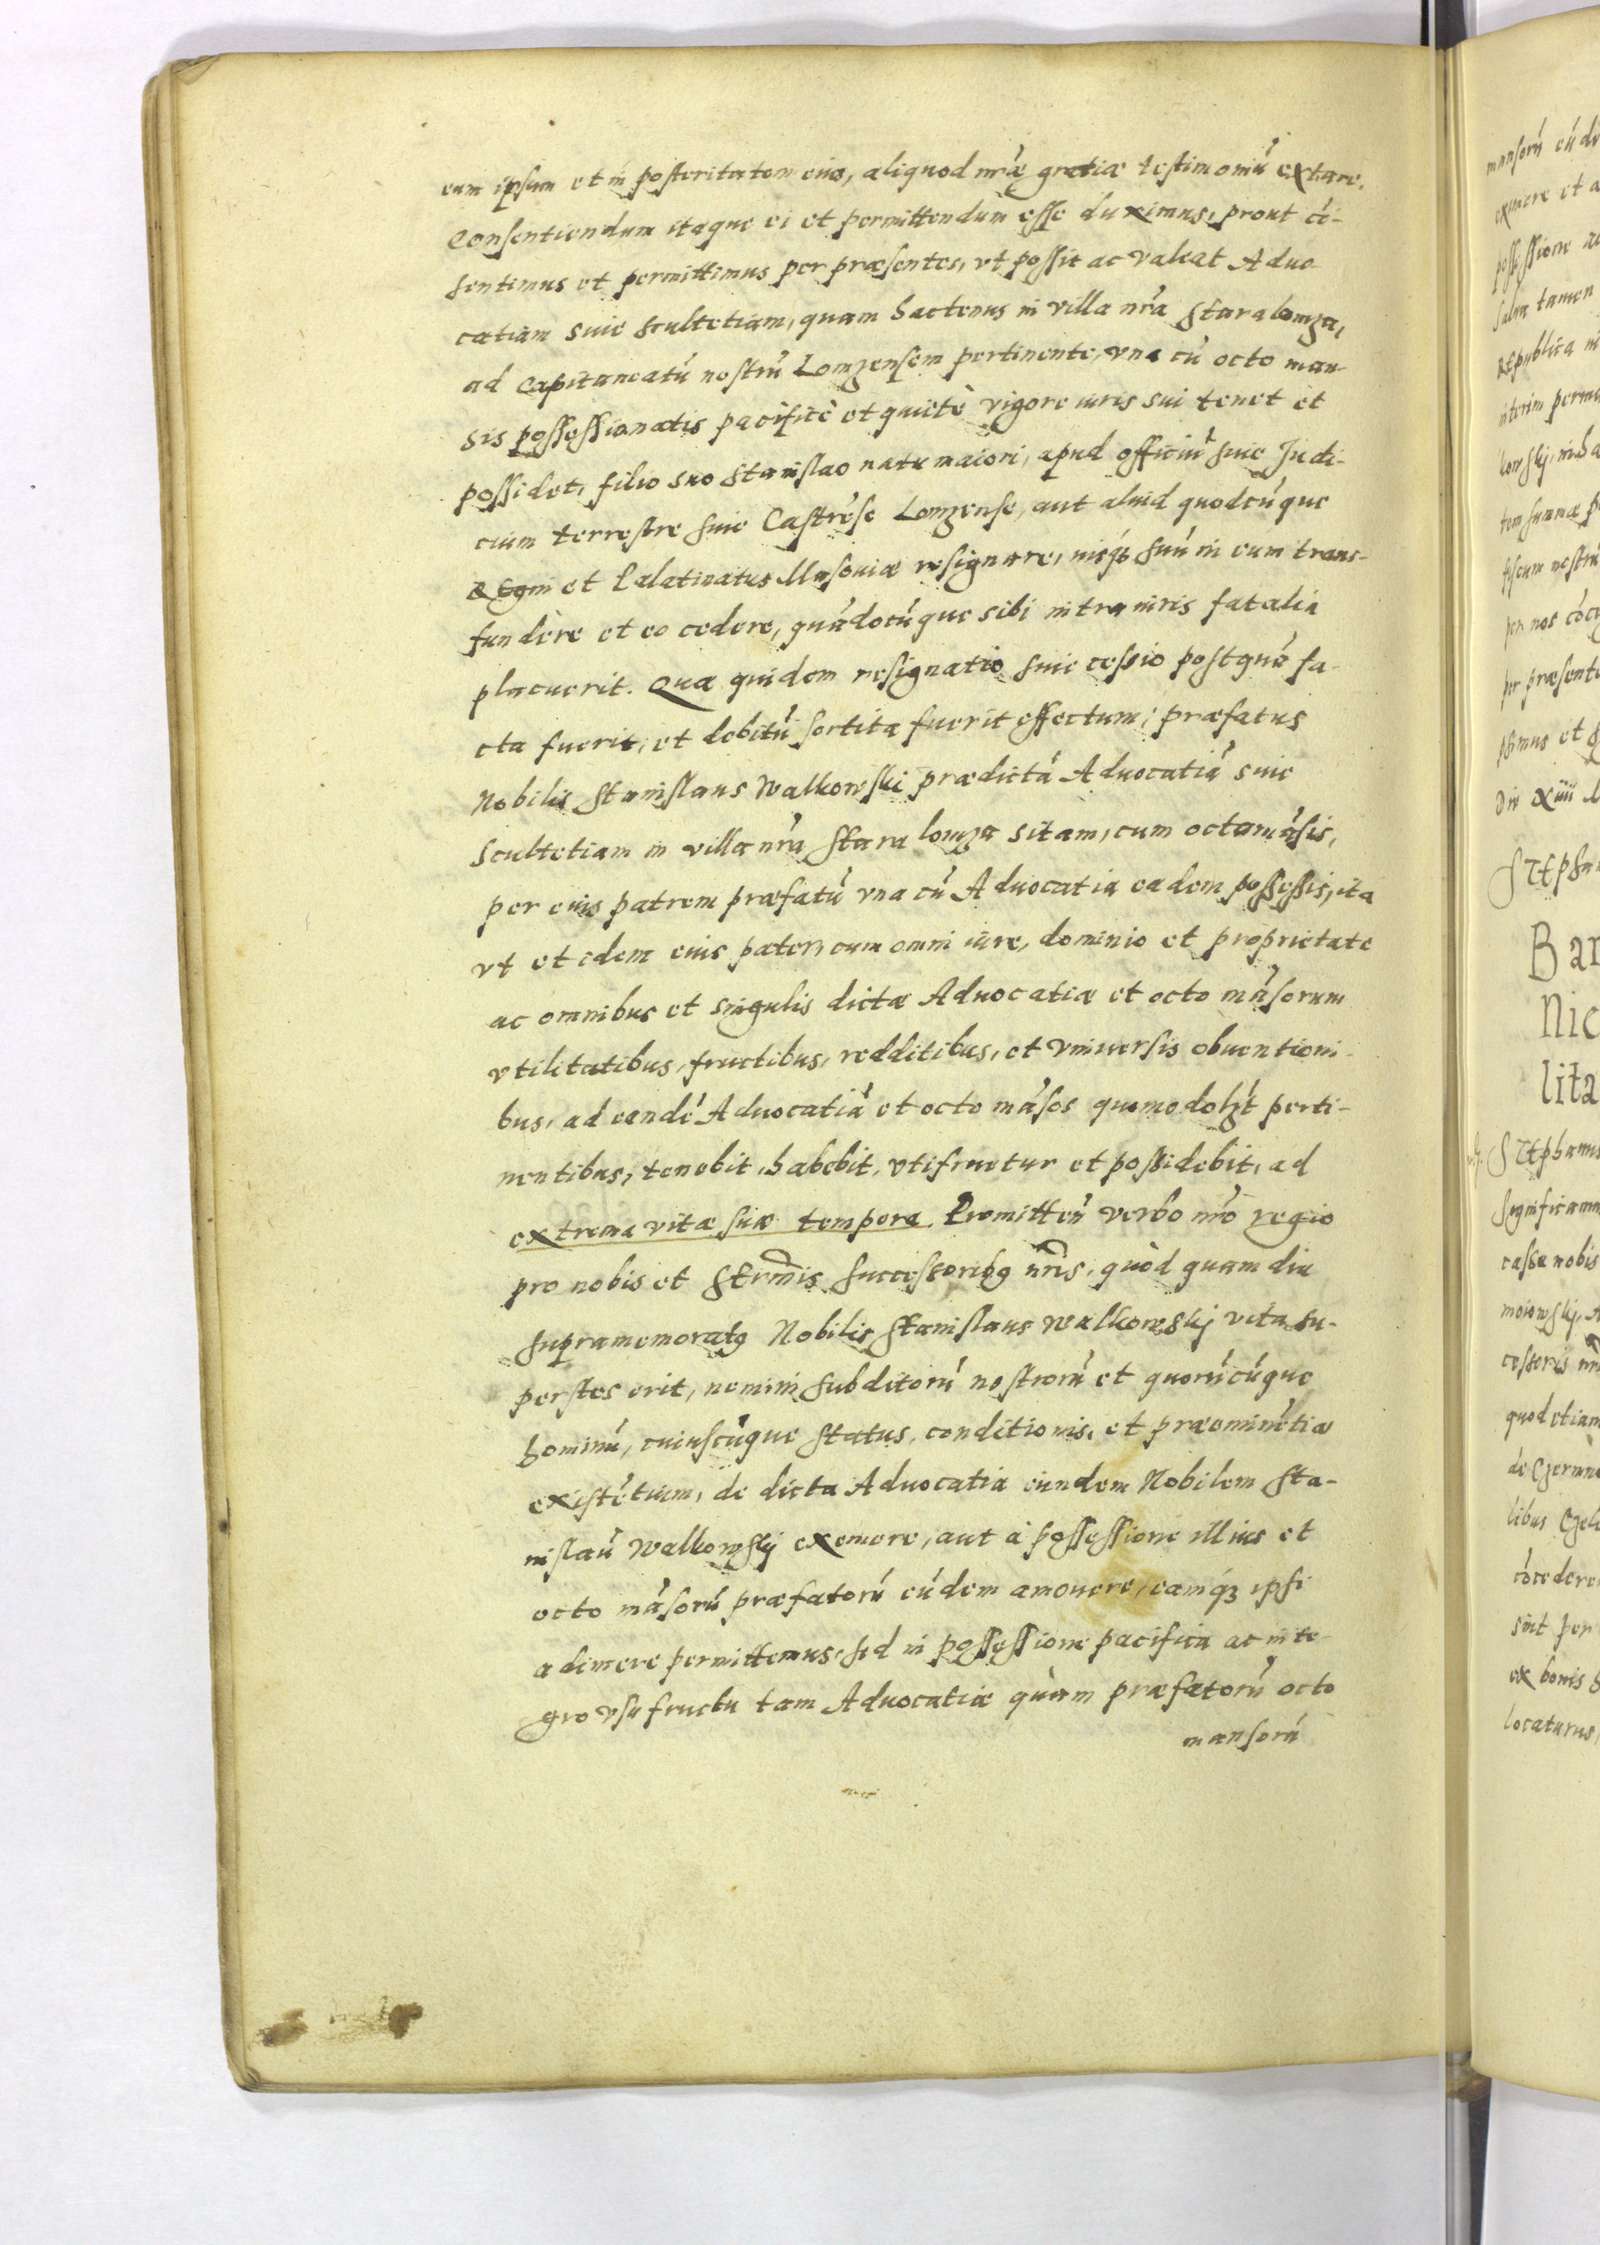 eum ipsum et in posteritatem eius, aliquod nr̃æ gratiæ testimoniũ extare.
Consentiendum itaque ei et permittendum esse duximus, prout cõ-
sentimus et permittimus per præsentes, vt possit ac valeat Aduo
catiam siue scultetiam, quam hactenus in villa nr̃a Stara lomza,
ad Capitaneatũ nostrũ Lomzensem pertinente, vna cũ octo man-
sis possessionatis pacificè et quietè vigore iuris sui tenet et
possidet, filio suo Stanislao natu maiori, apud officiũ siue Judi-
cium terrestre siue Castrẽse Lomzense, aut aliud quodcũque
Regni et Palatinatus Masouiæ resignare, iusq3 suũ in eum trans-
fundere et eo cedere, quãdocũque sibi intra iuris fatalia
placuerit. Quæ quidem resignatio siue cessio postquã fa-
cta fuerit, et debitũ sortita fuerit effectum; præfatus
Nobilis Stanislaus Walkowski prædictã Aduocatiã siue
scultetiam in villa nr̃a Stara lomza sitam, cum octo mãsis,
per eius patrem præfatũ vna cũ Aduocatia eadem possessis, ita
vt et idem eius pater, cum omni iure, dominio et proprietate
ac omnibus et singulis dictæ Aduocatiæ et octo mãsorum
vtilitatibus, fructibus, redditibus, et vniuersis obuentioni-
bus, ad eandẽ Aduocatiã et octo mãsos quomodolzt perti-
nentibus, tenebit, habebit, vtifruetur et possidebit, ad
extrema vitæ suæ tempora. Promitteñ verbo nr̃o regio
pro nobis et Serm̃is successoribq nr̃is, quòd quam diu
supramemoratq Nobilis Stanislaus Walkowskij vita su-
perstes erit, nemini subditorũ nostrorũ et quorũcũque
hominũ, cuiuscũque status, conditionis, et præeminẽtiæ
existẽtium, de dicta Aduocatia eundem Nobilem Sta-
nislaũ Walkowskij exemere, aut à possessione illius et
octo mãsorũ præfatorũ eũdem amouere, eamq3 ipsi
adimere permittemus, sed in possessione pacifica ac inte-
gro vsufructu tam Aduocatiæ quàm præfatorũ octo
mansorũ
mansorũ eũde
eximere et a
possessione
Salua tamen
Republica
interim
per nos
fiscum nostrũ
per præsente
Die xiiii
Bar
Nic
lita
Stephanus
Significamus
nobis
quod etiam
libus
cõcedere
sint per
ex bonis
locaturus,